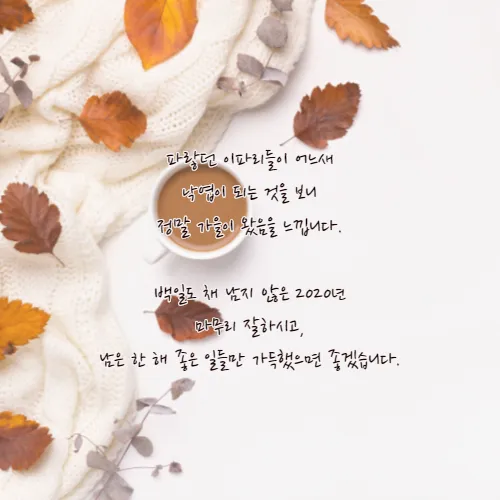 파랗던 이파리들이 어느새
낙엽이 되는 것을 보니
정말 가을이 왔음을 느낍니다.
백일도 채 남지 않은 2020년
마무리 잘하시고,
남은 한 해 좋은 일들만 가득했으면 좋겠습니다.